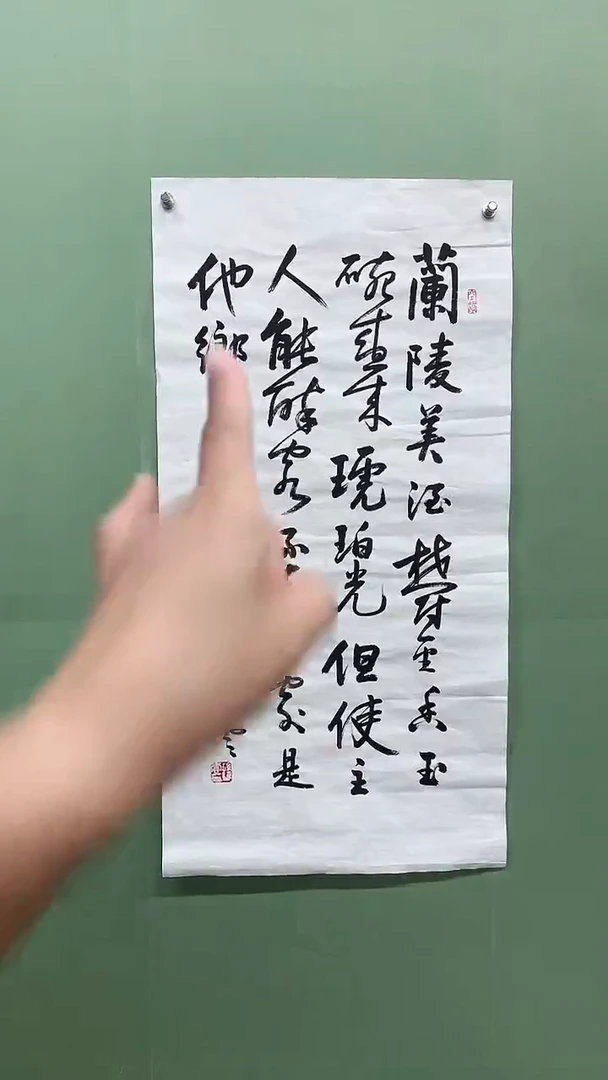 蘭陵美酒鬱金香玉
碗盛来琥珀光但使主
人能醉客不處是
他鄉